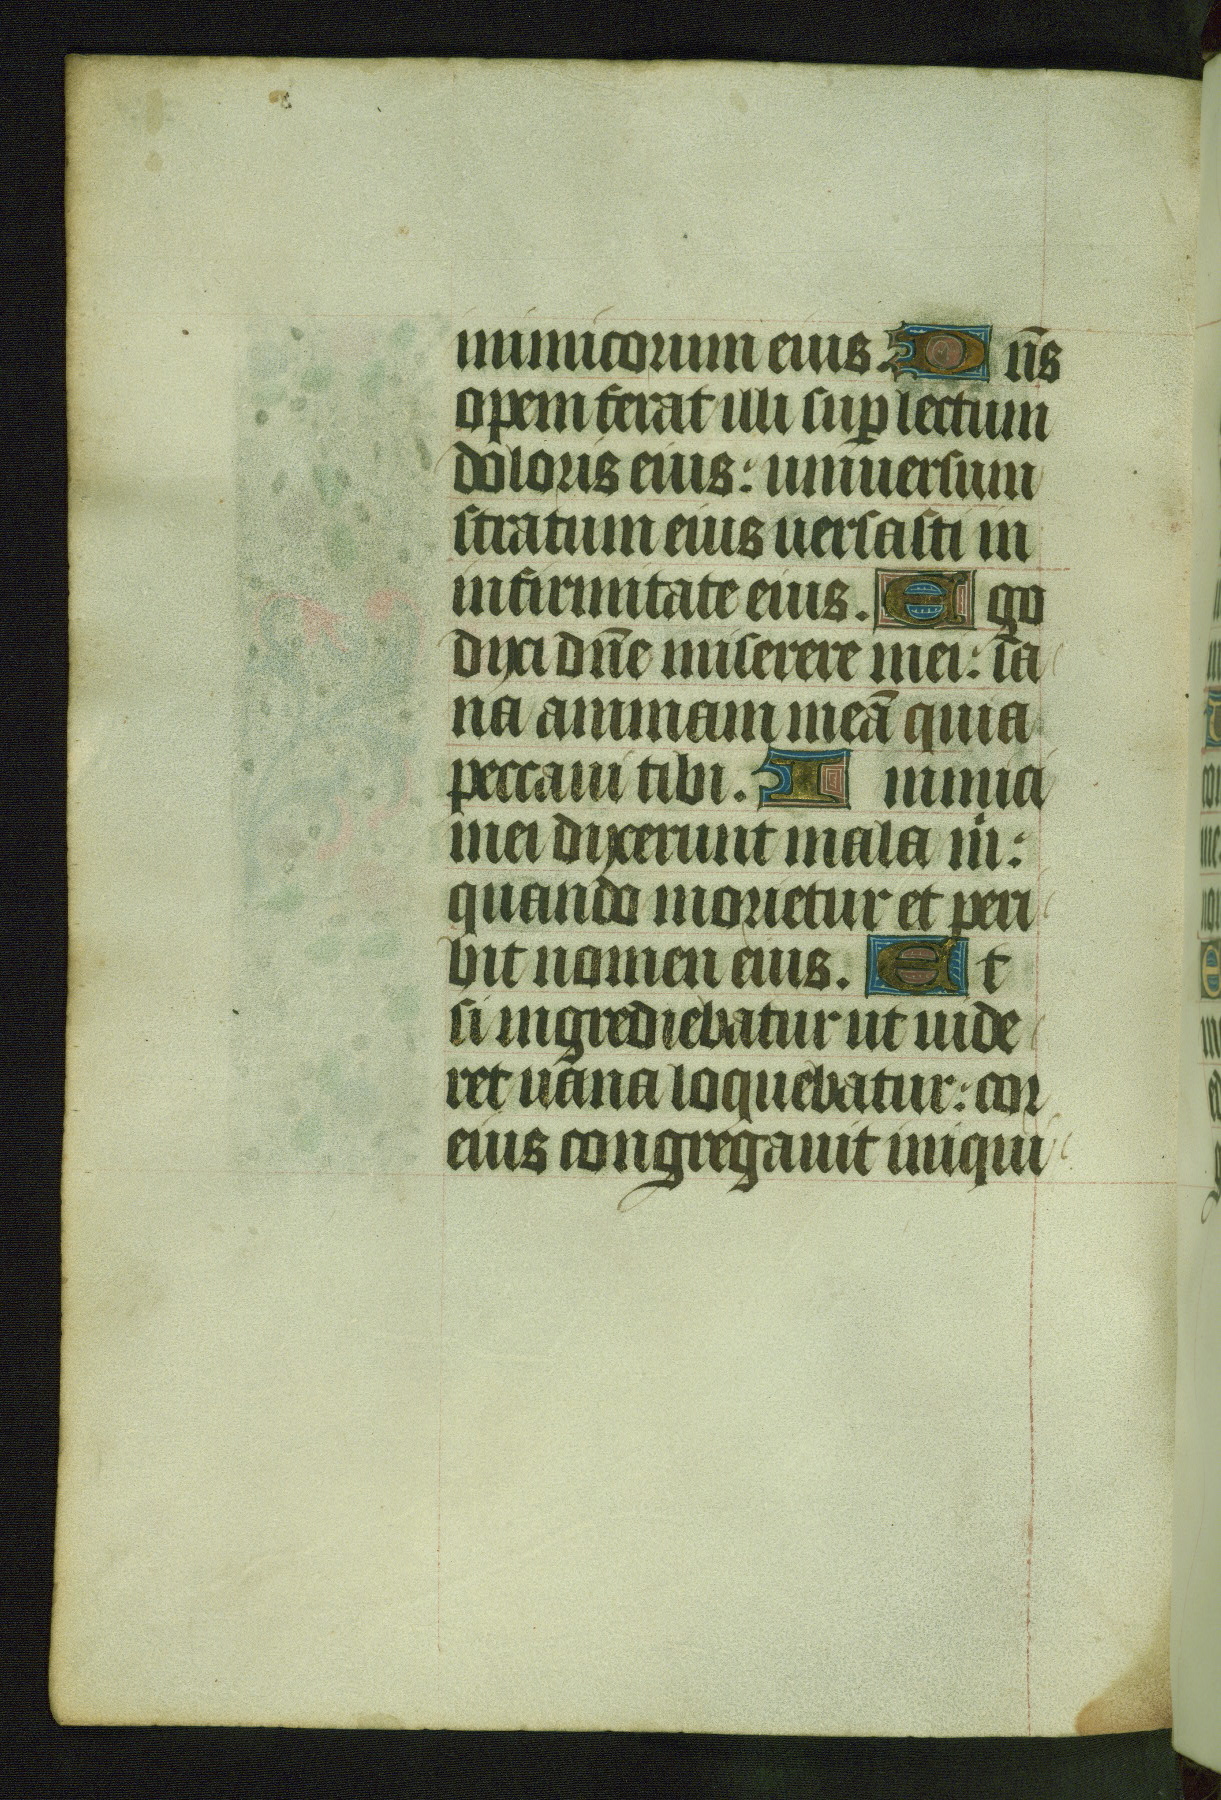 inimicorum eius. D n̄s
opem ferat illi suꝑ lectum
doloris eius: uniuersum
stratum eius uersasti in
infirmitate eius. E go
dixi dn̄e miserere mei: sa
na animam meā quia
peccaui tibi. I nimici
mei dixerunt mala m̍:
quando morietur et peri
bit nomen eius. E t
si ingrediebatur ut uide
ret uana loquebatur: cor
eius congregauit iniqui